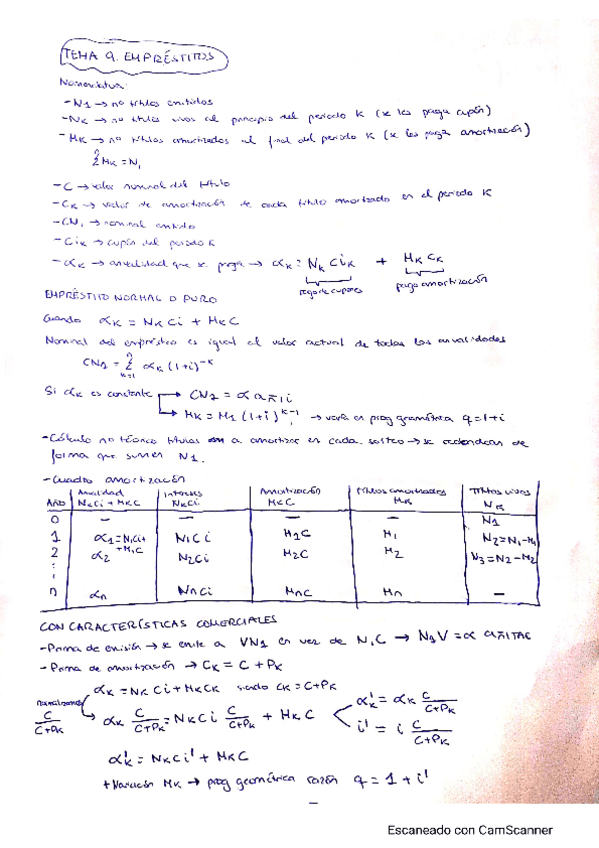 TEMA 9. EMPRÉSTITOS
Nomenclatura:
- N1 → nº títulos emitidos
- Nk → nº títulos vivos al principio del periodo K (se les paga cupón)
- Mk → nº títulos amortizados al final del periodo K (se les paga amortización)
Σ Mk = N1
- C → valor nominal del título
- Ck → valor de amortización de cada título amortizado en el periodo K
- CN1 → nominal emitido
- Cik → cupón del periodo K
- αk → anualidad que se paga → αk = Nk Cik + Mk Ck
pago de cupones pago amortización
EMPRÉSTITO NORMAL O PURO
Cuando αk = Nk Ci + Mk C
Nominal del empréstito es igual al valor actual de todas las anualidades
CN1 = Σ αk (1+i)^-k
Si αk es constante → CN1 = α a n̅ i
→ Mk = M1 (1+i)^k-1 → varía en prog geométrica q=1+i
- Cálculo nº técnico títulos a amortizar en cada sorteo → se redondean de
forma que sumen N1.
- Cuadro amortización
Año Anualidad Intereses Amortización títulos amortizados Títulos vivos
Nk Ci + Mk C Nk Ci Mk C Mk Nk
0 — — — — N1
1 α1 = N1 Ci + M1 C N1 Ci M1 C M1 N2 = N1 - M1
2 α2 N2 Ci M2 C M2 N3 = N2 - M2
n αn Nn Ci Mn C Mn —
CON CARACTERÍSTICAS COMERCIALES
- Prima de emisión → se emite a VN1 en vez de N1C → N1V = α a n̅ TAE
- Prima de amortización → Ck = C + Pk
αk = Nk Ci + Mk Ck siendo Ck = C + Pk
C/C+Pk → αk C/C+Pk = Nk Ci C/C+Pk + Mk C
α'k = αk C/C+Pk
i' = i C/C+Pk
α'k = Nk Ci' + Mk C
+ Variación Mk → prog geométrica razón q = 1 + i'
Escaneado con CamScanner